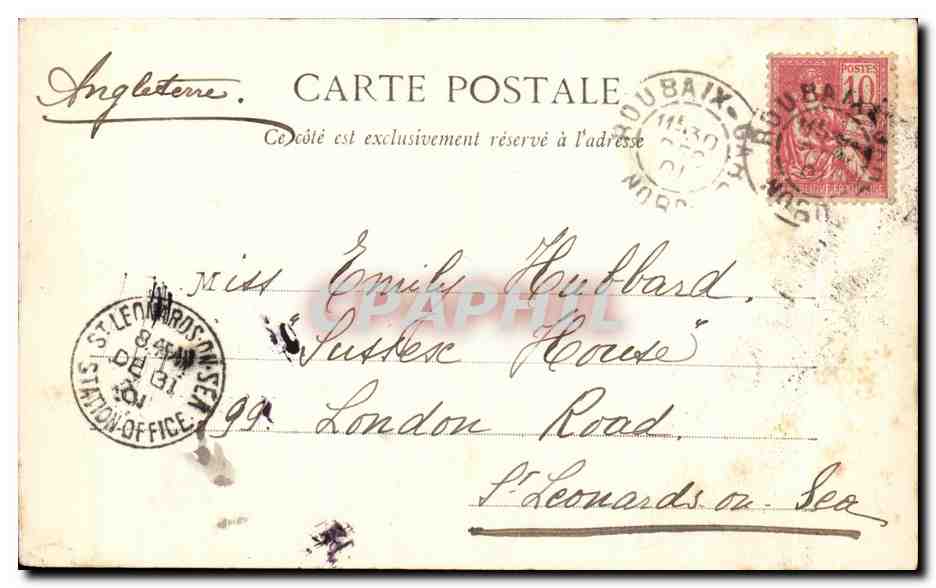 Angleterre.
CARTE POSTALE
Ce côté est exclusivement réservé à l'adresse
ROUBAIX-GARE
11 30
01
NORD
POSTES
10
ROUBAIX
NORD
Miss Emily Hubbard.
CPAPHIL
"Sussex House"
99. London Road.
St Leonards-on-Sea
ST LEONARDS-ON-SEA
DE 31
01
STATION-OFFICE